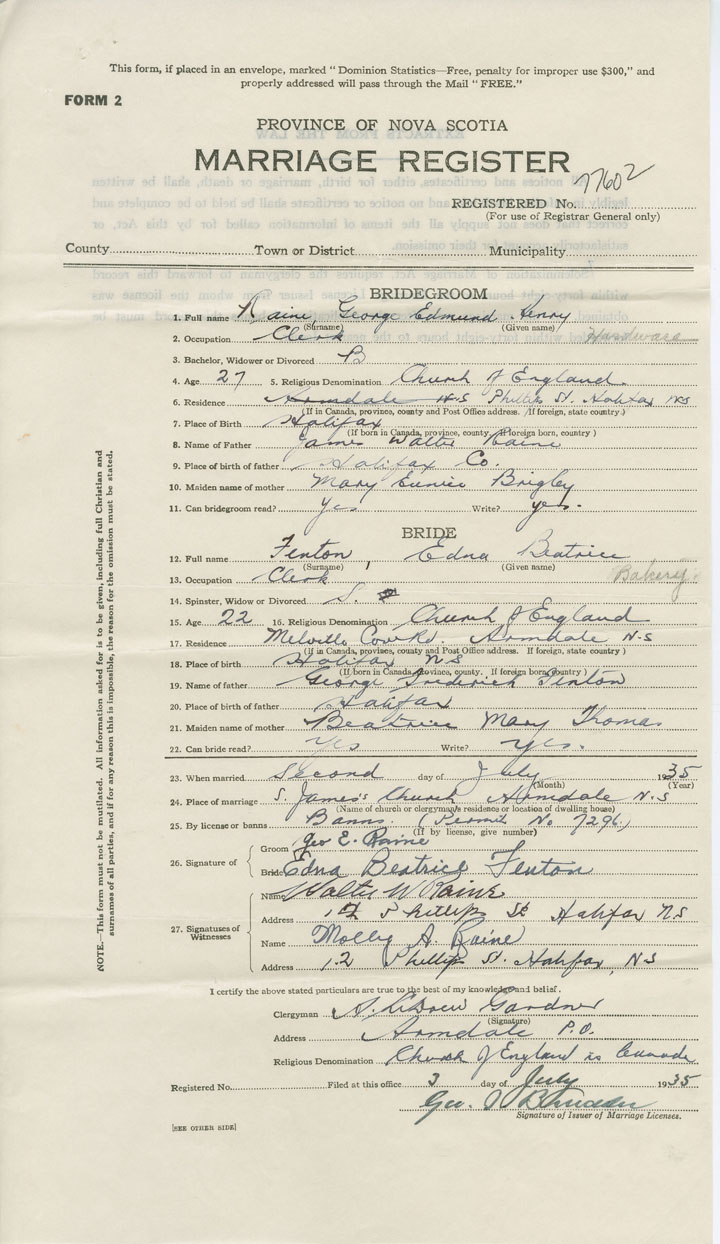 This form, if placed in an envelope, marked "Dominion Statistics—Free, penalty for improper use $300," and
properly addressed will pass through the Mail "FREE."
FORM 2
PROVINCE OF NOVA SCOTIA
MARRIAGE REGISTER
REGISTERED No. 77602
(For use of Registrar General only)
County Town or District Municipality
BRIDEGROOM
1. Full name Raine George Edmund Henry
(Surname) (Given name)
2. Occupation Clerk Hardware
3. Bachelor, Widower or Divorced B
4. Age 27 5. Religious Denomination Church of England
6. Residence Armdale N.S Phillip St. Halifax NS
(If in Canada, province, county and Post Office address. If foreign, state country.)
7. Place of Birth Halifax
(If born in Canada, province, county. If foreign born, country)
8. Name of Father James Walter Raine
9. Place of birth of father Halifax Co.
10. Maiden name of mother Mary Eunice Brigley
11. Can bridegroom read? Yes Write? yes.
BRIDE
12. Full name Fenton, Edna Beatrice
(Surname) (Given name)
13. Occupation Clerk Bakery.
14. Spinster, Widow or Divorced S.
15. Age 22 16. Religious Denomination Church of England
17. Residence Melville Cove Rd. Armdale N.S
(If in Canada, province, county and Post Office address. If foreign, state country)
18. Place of birth Halifax N.S
(If born in Canada, province, county. If foreign born, country)
19. Name of father George Frederick Fenton
20. Place of birth of father Halifax
21. Maiden name of mother Beatrice Mary Thomas
22. Can bride read? Yes Write? Yes.
23. When married Second day of July 1935
(Month) (Year)
24. Place of marriage S. James's Church Armdale N.S
(Name of church or clergyman's residence or location of dwelling house)
25. By license or banns Banns. (Permit No 7296)
(If by license, give number)
26. Signature of
Groom Geo E. Raine
Bride Edna Beatrice Fenton
27. Signatures of Witnesses
Name Walter W Raine
Address 12 Phillip St Halifax N.S
Name Molly A. Raine
Address 12 Phillip St. Halifax, N.S
I certify the above stated particulars are true to the best of my knowledge and belief.
Clergyman Gardner
(Signature)
Address Armdale P.O.
Religious Denomination Church of England in Canada
Registered No. Filed at this office 3 day of July 1935
Geo.
Signature of Issuer of Marriage Licenses.
[SEE OTHER SIDE]
NOTE.—This form must not be mutilated. All information asked for is to be given, including full Christian and
surnames of all parties, and if for any reason this is impossible, the reason for the omission must be stated.